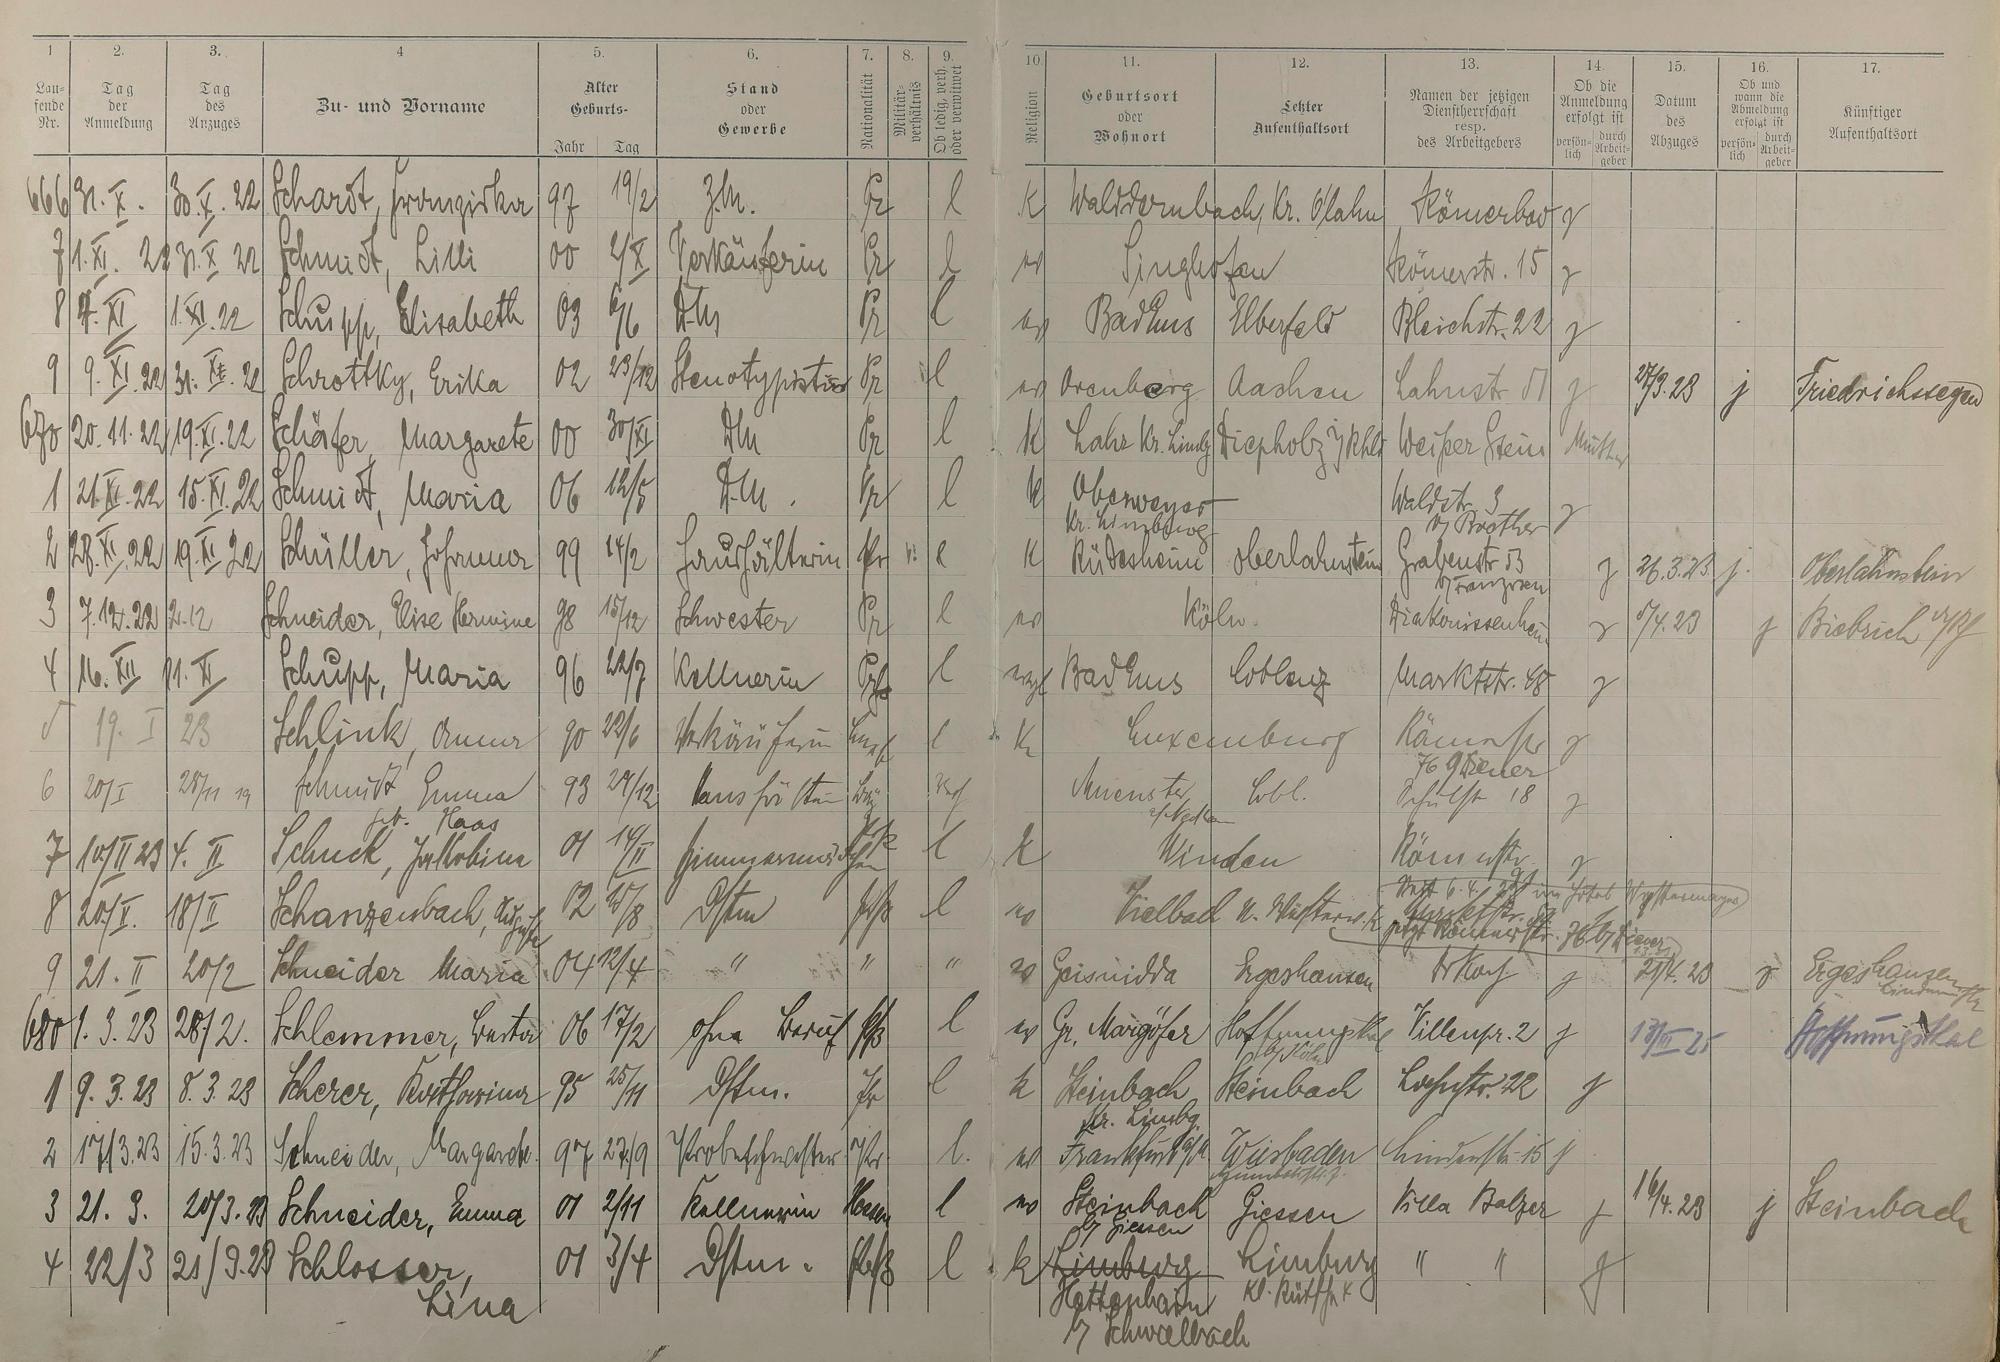 1 2. 3. 4 5. 6. 7. 8. 9. 10 11. 12. 13. 14. 15. 16. 17.
Laufende Nr. Tag der Anmeldung Tag des Anzuges Zu- und Vorname Alter Geburts- Jahr Tag Stand oder Gewerbe Nationalität Militärverhältnis Ob ledig, verh. oder verwitwet Religion Geburtsort oder Wohnort Letzter Aufenthaltsort Namen der jetzigen Dienstherrschaft resp. des Arbeitgebers Ob die Anmeldung erfolgt ist persönlich durch Arbeitgeber Datum des Abzuges Ob und wann die Abmeldung erfolgt ist persönlich durch Arbeitgeber Künftiger Aufenthaltsort
666 31. X. 30. X. 22 Schardt, Franziska 97 19/2 Z.M. Pr l K Walddernbach, Kr. O/lahn Römerbad j
7 1. XI. 22 31. X 22 Schmidt, Lilli 00 2/X Verkäuferin Pr l ev Singhofen Römerstr. 15 j
8 4. XI 1. XI. 22 Schupp, Elisabeth 03 6/6 D.M Pr l ev Bad Ems Elberfeld Bleichstr. 22 j
9 9. XI. 22 31. X. 22 Schrottky, Erika 02 23/12 Stenotypistin Pr l ev Aachen Lahnstr. 51 j 27/3.23 j Friedrichssegen
670 20.11.22 19. XI. 22 Schäfer, Margarete 00 30/XI DM Pr l K Lahr Kr. Limbg Diepholz Weißer Stein Mutter
1 21. XI. 22 15. XI. 22 Schmidt, Maria 06 12/5 D.M. Pr l K Oberweyer Waldstr. 3 j
Kr. Limburg
2 28. XI. 22 19. XI 22 Schüller, Johanna 99 14/2 Haushälterin Pr l K Rüdesheim Oberlahnstein Grabenstr 53 j 26.3.23. j. Oberlahnstein
3 7.12.22 2.12 Schneider, Elise Hermine 98 15/12 Schwester Pr l ev Köln Diakonissenheim j 5/4.23 j Biebrich a/Rh
4 16. XII 11. XI Schupp, Maria 96 22/7 Kellnerin l evgl Bad Ems Coblenz Marktstr. 48 j
5 19. I 23 Schlink, Anna 90 22/6 Verkäuferin l K Luxemburg Römerstr j
76 b/Diener
6 20/I 28/11 19 Schmidt Emma 93 24/12 Cobl. Schulstr 18 j
geb. Haas
7 10/II 23 4. II Schuck, Jakobina 01 14/II l K Winden Römerstr. j
8 20/II. 18/II Schanzenbach, Auguste 02 25/8 Dstm l ev Vielbach
jetzt Römerstr. 76 b/Diener
9 21. II 20/2 Schneider Maria 04 12/4 " " " ev Geisnidda Ergeshausen j 21/4.23 j Ergeshausen
680 1.3.23 28/2. Schlemmer, Berta 06 17/2 ohne Beruf l ev Hoffnungsthal Villenpr. 2 j 13/III 25 Hoffnungsthal
b/Köln
1 9.3.23 8.3.23 Scherer, Katharina 95 25/11 Dstm. Pr l K Steinbach Steinbach Lahnstr. 22 j
Kr. Limbg.
2 17/3.23 15.3.23 Schneider, Margarete. 97 27/9 Probeschwester Pr. l. ev Frankfurt a/M. Wiesbaden Lindenstr. 15 j
3 21. 3. 20/3. 23 Schneider, Emma 01 2/11 Kellnerin Hessen l ev Steinbach Giessen Villa Balzer j 16/4.23 j Steinbach
b/ Giessen
4 22/3 21/3.23 Schlosser, 01 3/4 Dstm. l k Limburg Limburg " " j
Lina Hettenhain
b/ Schwalbach